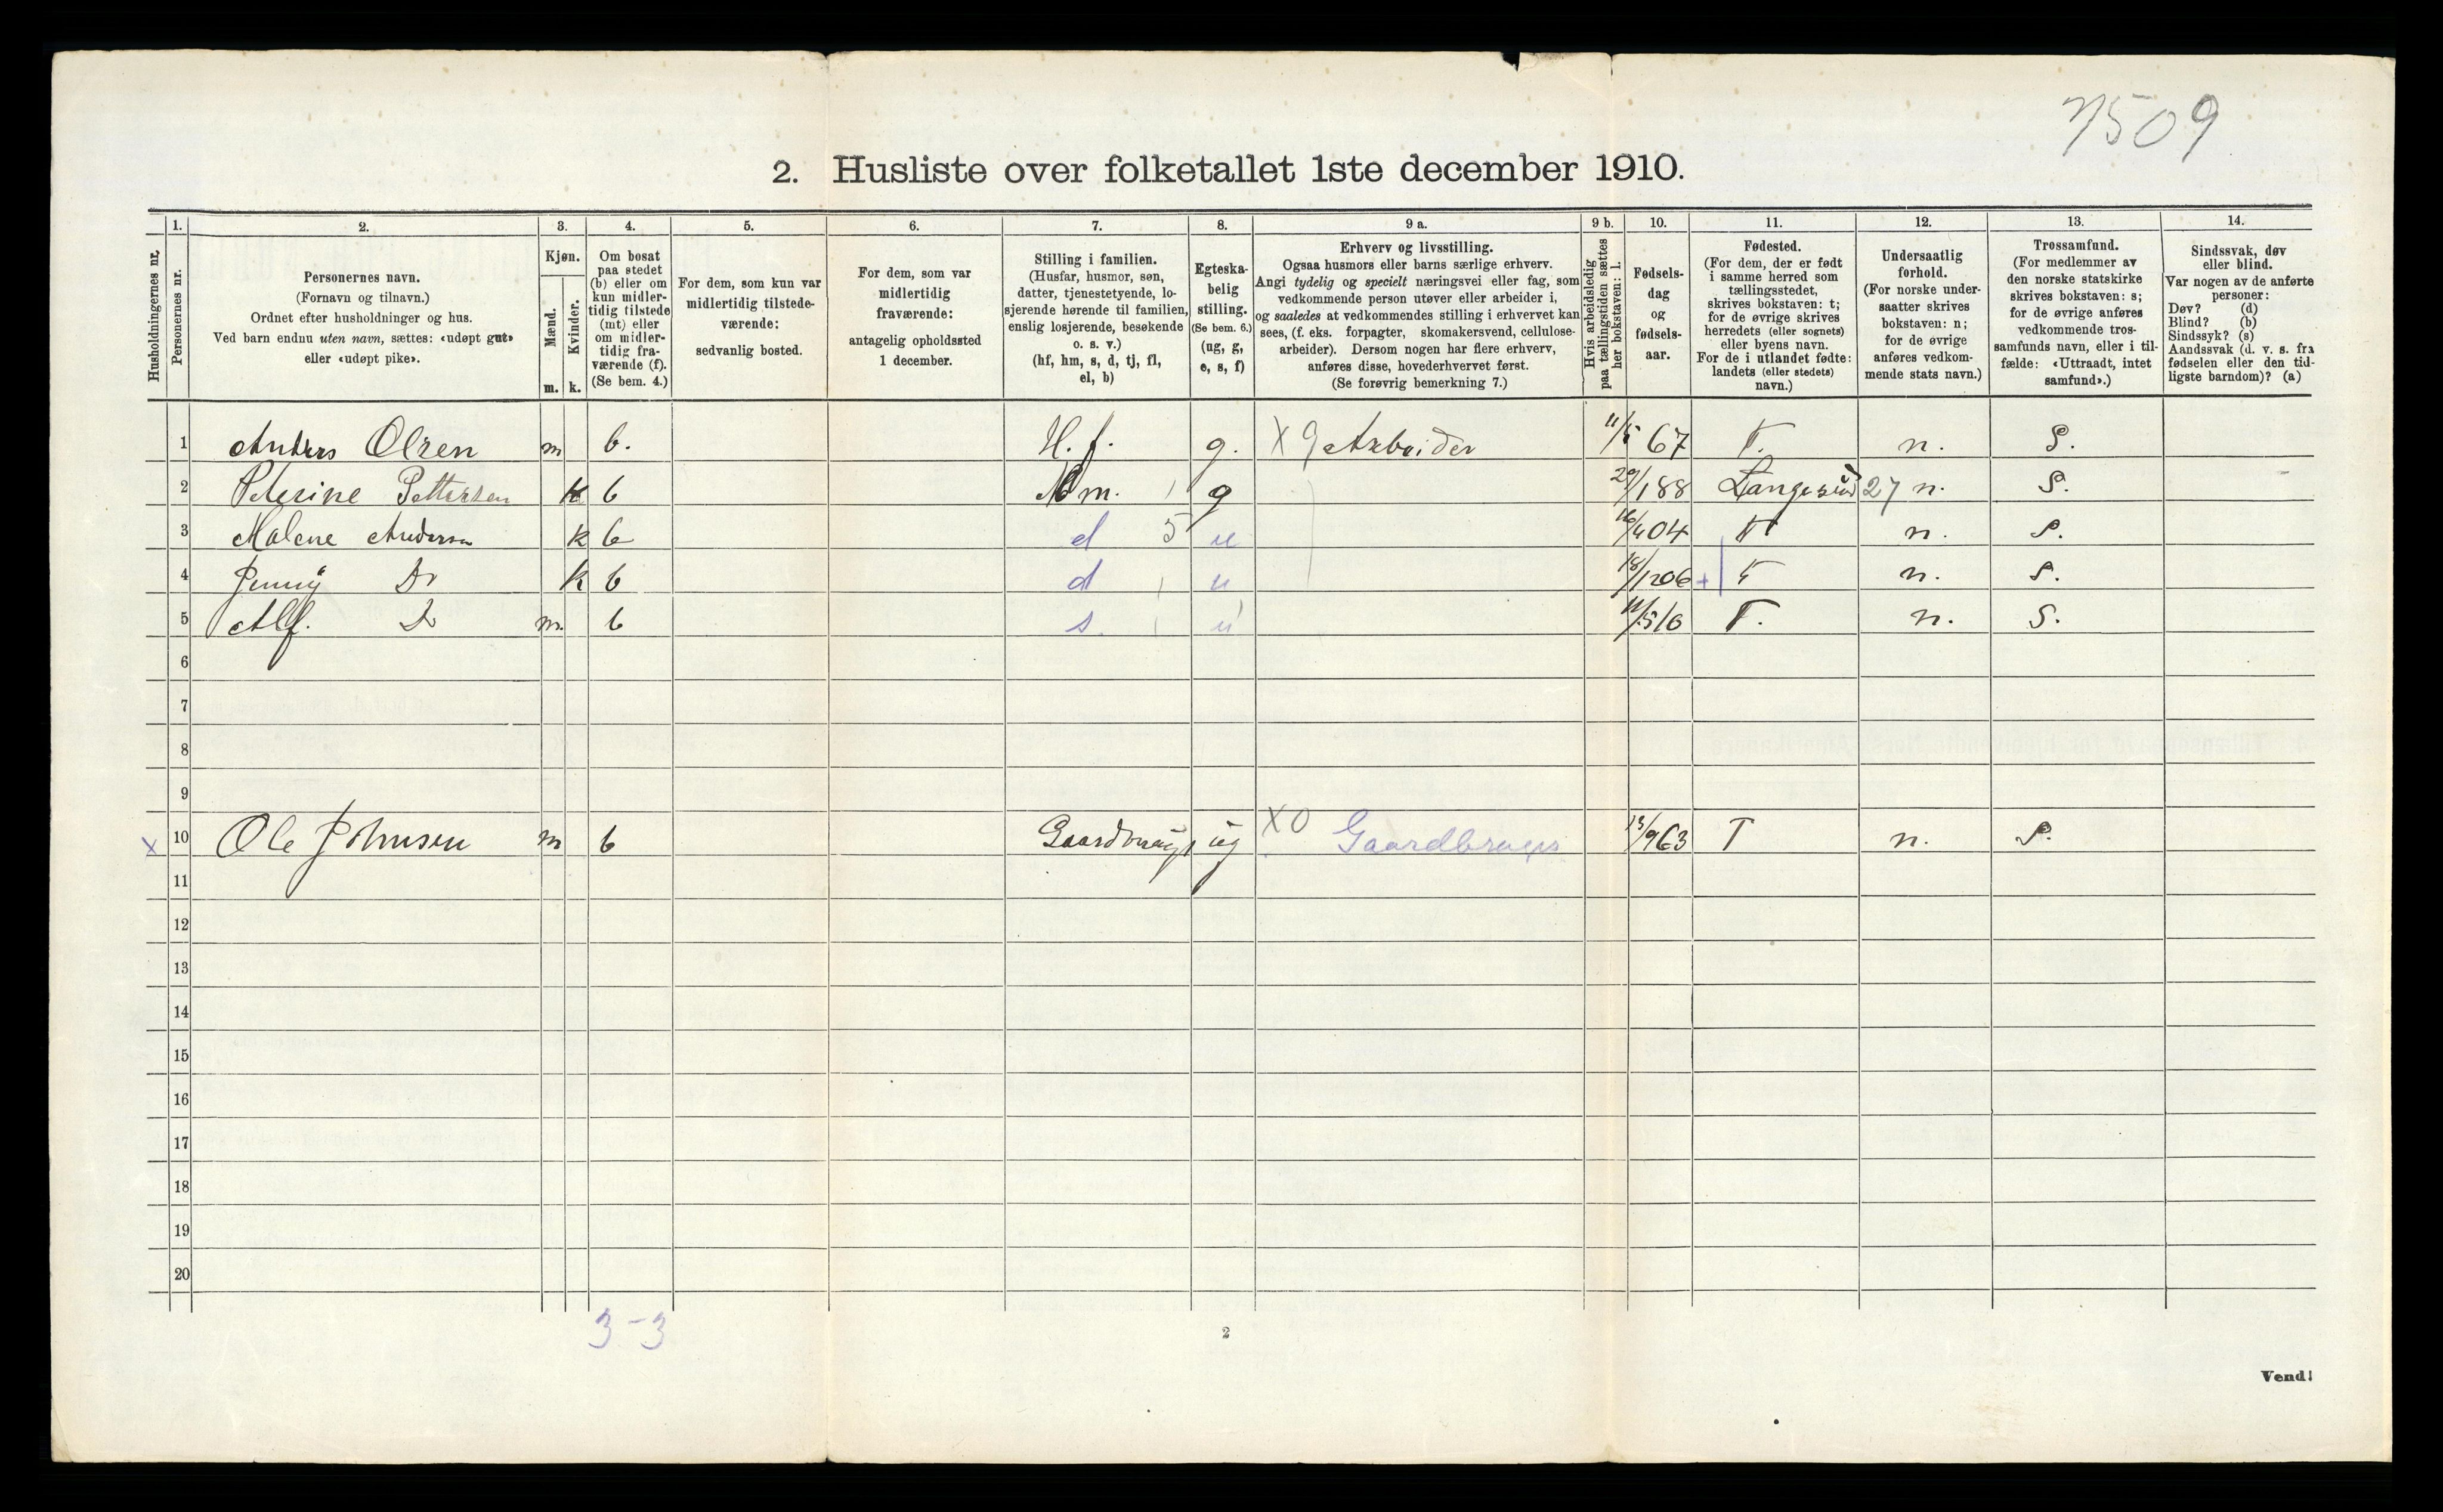 7509
2. Husliste over folketallet 1ste december 1910.
Husholdningernes nr.
1.
Personernes nr.
2.
Personernes navn.
(Fornavn og tilnavn.)
Ordnet efter husholdninger og hus.
Ved barn endnu uten navn, sættes: «udøpt gut»
eller «udøpt pike».
3.
Kjøn.
Mænd.
m.
Kvinder.
k.
4.
Om bosat
paa stedet
(b) eller om
kun midler-
tidig tilstede
(mt) eller
om midler-
tidig fra-
værende (f).
(Se bem. 4.)
5.
For dem, som kun var
midlertidig tilstede-
værende:
sedvanlig bosted.
6.
For dem, som var
midlertidig
fraværende:
antagelig opholdssted
1 december.
7.
Stilling i familien.
(Husfar, husmor, søn,
datter, tjenestetyende, lo-
sjerende hørende til familien,
enslig losjerende, besøkende
o. s. v.)
(hf, hm, s, d, tj, fl,
el, b)
8.
Egteska-
belig
stilling.
(Se bem. 6.)
(ug, g,
e, s, f)
9 a.
Erhverv og livsstilling.
Ogsaa husmors eller barns særlige erhverv.
Angi tydelig og specielt næringsvei eller fag, som
vedkommende person utøver eller arbeider i,
og saaledes at vedkommendes stilling i erhvervet kan
sees, (f. eks. forpagter, skomakersvend, cellulose-
arbeider). Dersom nogen har flere erhverv,
anføres disse, hovederhvervet først.
(Se forøvrig bemerkning 7.)
9 b.
Hvis arbeidsledig
paa tællingstiden sættes
her bokstaven: l.
10.
Fødsels-
dag
og
fødsels-
aar.
11.
Fødested.
(For dem, der er født
i samme herred som
tællingsstedet,
skrives bokstaven: t;
for de øvrige skrives
herredets (eller sognets)
eller byens navn.
For de i utlandet fødte:
landets (eller stedets)
navn.)
12.
Undersaatlig
forhold.
(For norske under-
saatter skrives
bokstaven: n;
for de øvrige
anføres vedkom-
mende stats navn.)
13.
Trossamfund.
(For medlemmer av
den norske statskirke
skrives bokstaven: s;
for de øvrige anføres
vedkommende tros-
samfunds navn, eller i til-
fælde: «Uttraadt, intet
samfund».)
14.
Sindssvak, døv
eller blind.
Var nogen av de anførte
personer:
Døv? (d)
Blind? (b)
Sindssyk? (s)
Aandssvak (d. v. s. fra
fødselen eller den tid-
ligste barndom)? (a)
1 Anders Olsen m b. H. f. g. X 9 Arbeider 11/5 67 T. n. S.
2 Petrine Pettersen k b m. g 29/1 88 Langesund 27 n. S.
3 Malene Andersen k b d 5 u 16/4 04 T n. S.
4 Jenny Do k b d u 18/12 06 + T n. S.
5 Alf. Do m. b s. u 11/5 10 T. n. S.
6
7
8
9
x 10 Ole Johnsen m b Gaardbruger ug X0 Gaardbruger 13/9 63 T n. S.
11
12
13
14
15
16
17
18
19
20
3-3
2
Vend!